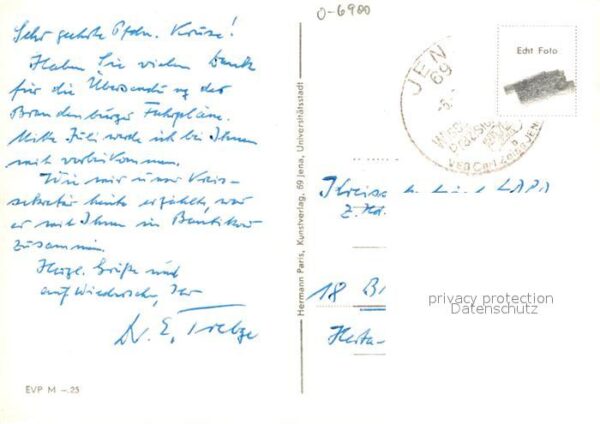 0-6900
Sehr geehrte Pfdn. Kruse!
Haben Sie vielen Dank
für die Übersendung der
Brandenburger Fahrpläne.
Mitte Juli werde ich bei Ihnen
mit vorbeikommen.
Wie mir unser Kreis-
sekretär heute erzählt, war
er mit Ihnen in Bantikow
zusammen.
Herzl. Grüße und
auf Wiedersehen, Ihr
Dr. E.
EVP M –.25
Hermann Paris, Kunstverlag, 69 Jena, Universitätsstadt
Echt Foto
JEN
69
VEB Carl Zeiss JEN
z. Hd.
18 B
privacy protection
Datenschutz